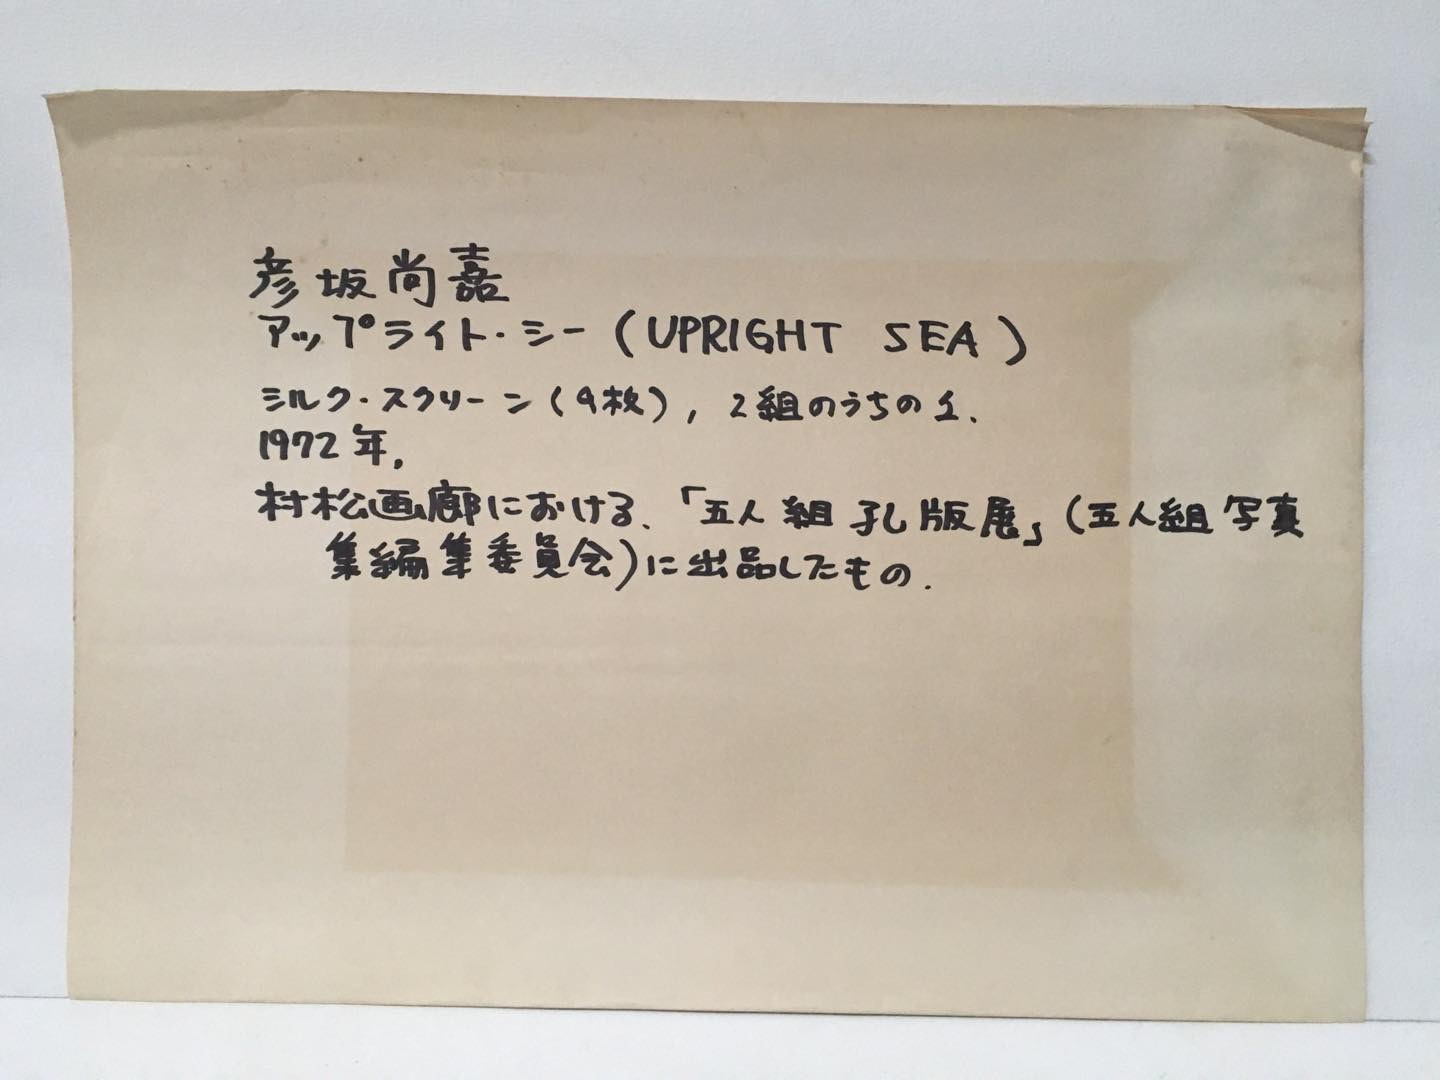 彦坂尚嘉
アップライト・シー(UPRIGHT SEA)
シルク・スクリーン(9枚), 2組のうちの1.
1972年.
村松画廊における、「五人組孔版展」(五人組写真
集編集委員会)に出品したもの.